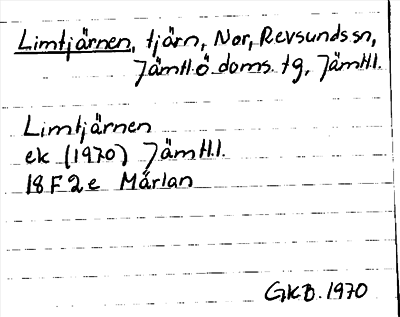 Limtjärnen, tjärn, Nor, Revsunds sn,
Jämtl. ö doms. tg, Jämtl.
Limtjärnen
ek (1970) Jämtl.
18 F 2 e Mårlan
GKB. 1970